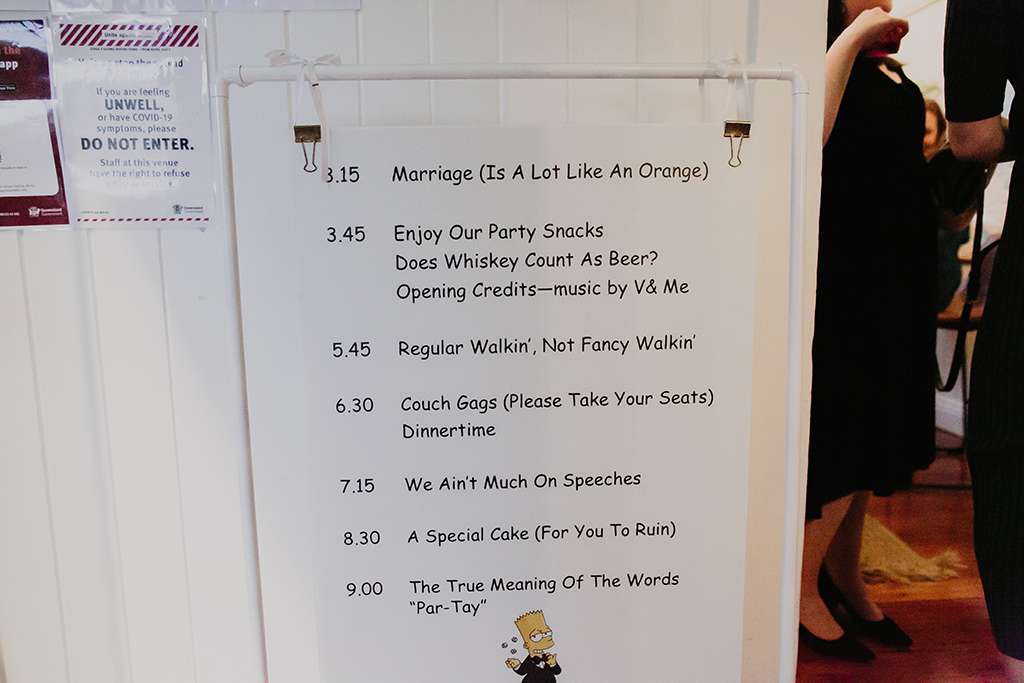 the
app
Unite against
If you are feeling
UNWELL,
or have COVID-19
symptoms, please
DO NOT ENTER.
Staff at this venue
have the right to refuse
Queensland
Government
Queensland
Government
3.15 Marriage (Is A Lot Like An Orange)
3.45 Enjoy Our Party Snacks
Does Whiskey Count As Beer?
Opening Credits—music by V& Me
5.45 Regular Walkin', Not Fancy Walkin'
6.30 Couch Gags (Please Take Your Seats)
Dinnertime
7.15 We Ain't Much On Speeches
8.30 A Special Cake (For You To Ruin)
9.00 The True Meaning Of The Words
"Par-Tay"